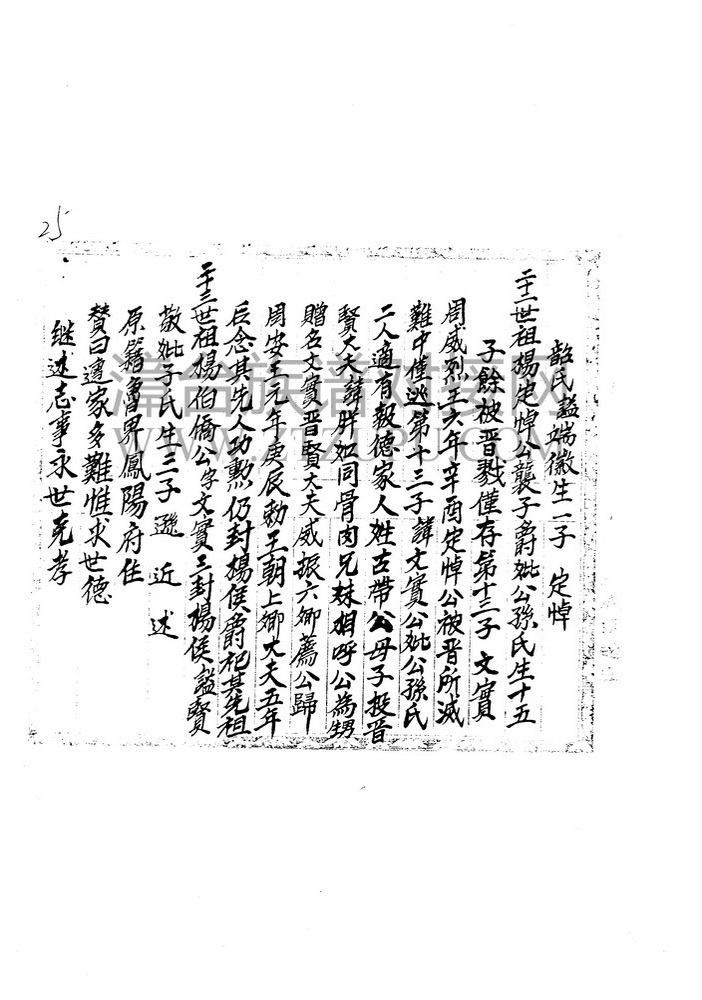 25
韶氏謚端徽生一子 定悼
二十二世祖楊定悼公襲子爵妣公孫氏生十五
子餘被晉戮僅存第十三子 文實
周威烈王六年辛酉定悼公被晉所滅
難中僅逃第十三子諱文實公妣公孫氏
二人適有毅德家人姓古帶公母子投晉
賢大夫諱胖如同骨肉兄妹相呼公為甥
贈名文實晉賢大夫威振六卿薦公歸
周安王元年庚辰勅王朝上卿大夫五年
后念其先人功勲仍封楊侯爵祀其先祖
二十三世祖楊伯僑公字文實三封楊侯謚賢
敬妣子氏生三子 遜 近 述
原籍魯界鳳陽府住
賛曰遭家多難惟求世德
继述志事永世克孝
WWW.ZTZUPU.COM